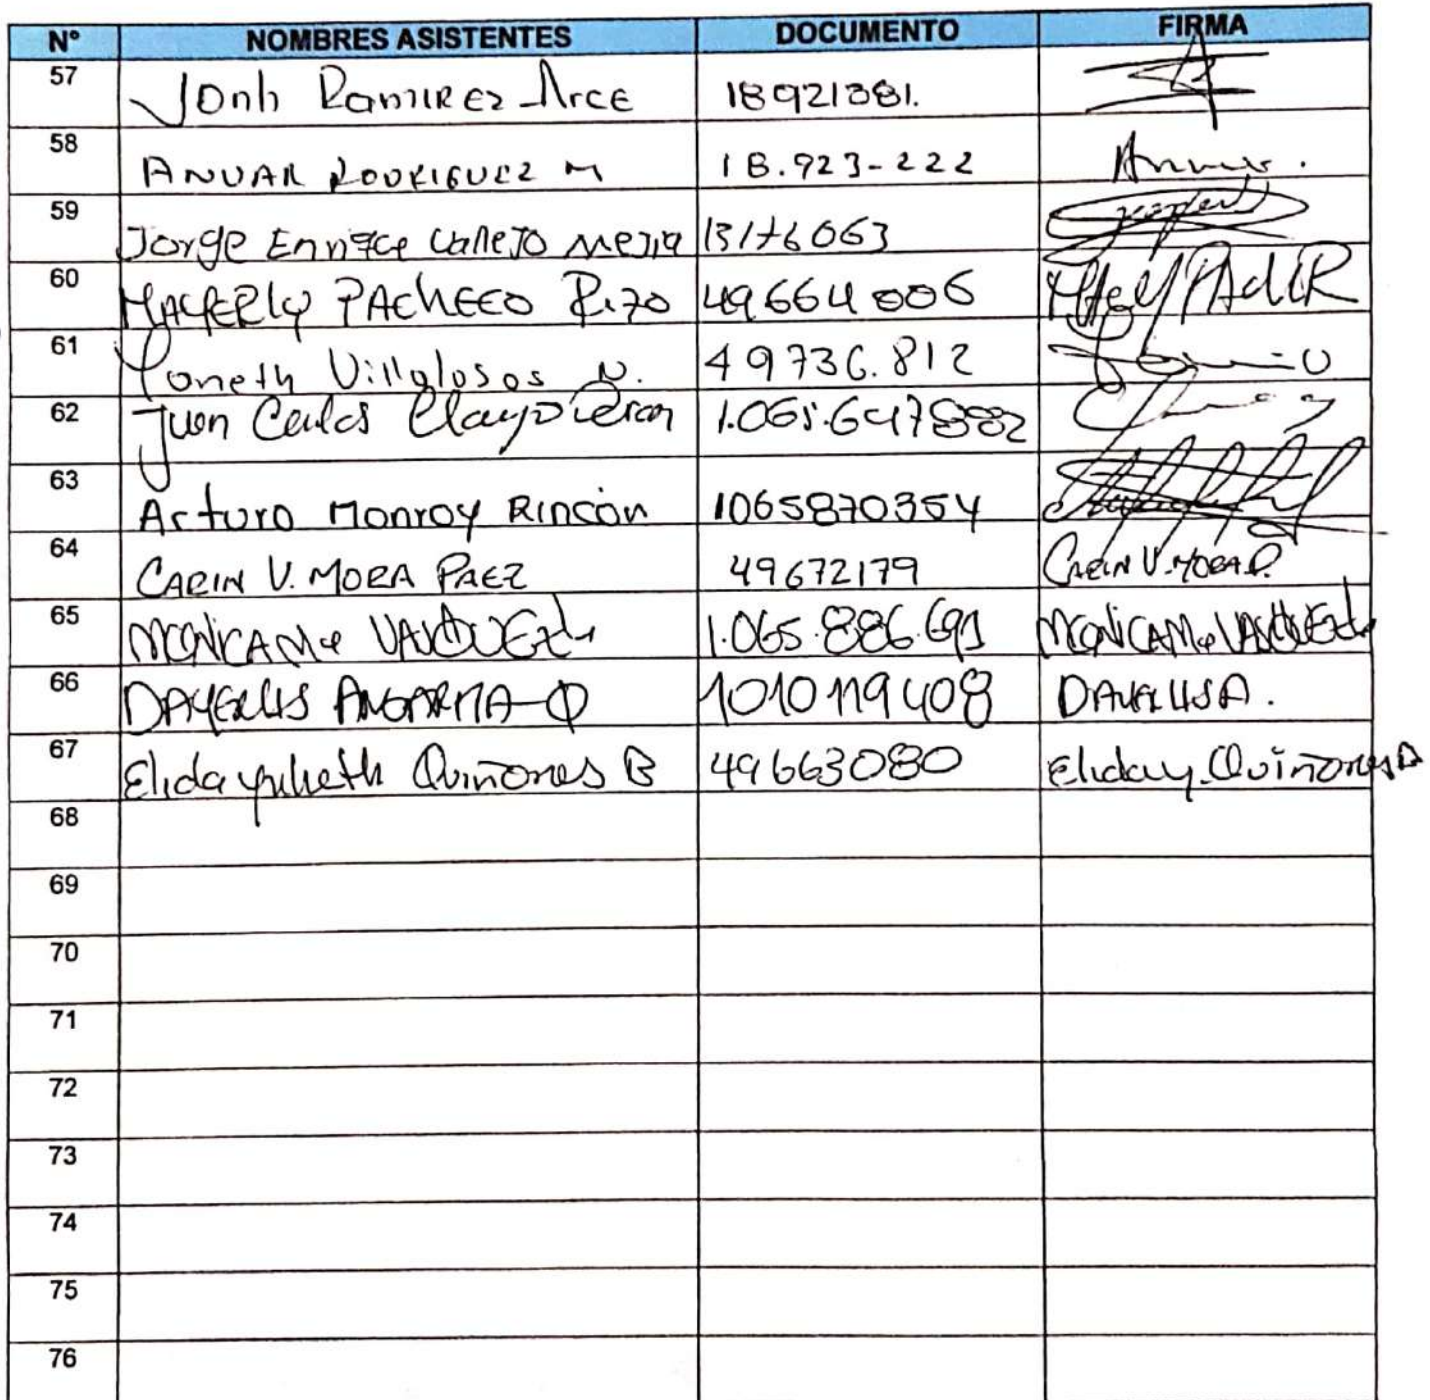 N° NOMBRES ASISTENTES DOCUMENTO FIRMA
57 Jonh Ramirez Arce 18921381.
58 ANUAR RODRIGUEZ M 18.923-222
59 Jorge Enrrqe Vallejo Mejia 13176063
60 MAYERly PACHECO Rizo 49664006
61 Yoneth Villalobos N. 49736.812
62 Juan Carlos Claro 1.065.647882
63 Arturo Monroy Rincón 1065870354
64 CARIN V. MORA PAEZ 49672179 CARIN V. MORA P.
65 MONICA Ma VASQUEZ 1.065.886.691 MONICA Ma VASQUEZ
66 DAYERLIS ANGARITA 1010119408
67 Elida yulieth Quiñones B 49663080 Eliday Quiñones B
68
69
70
71
72
73
74
75
76